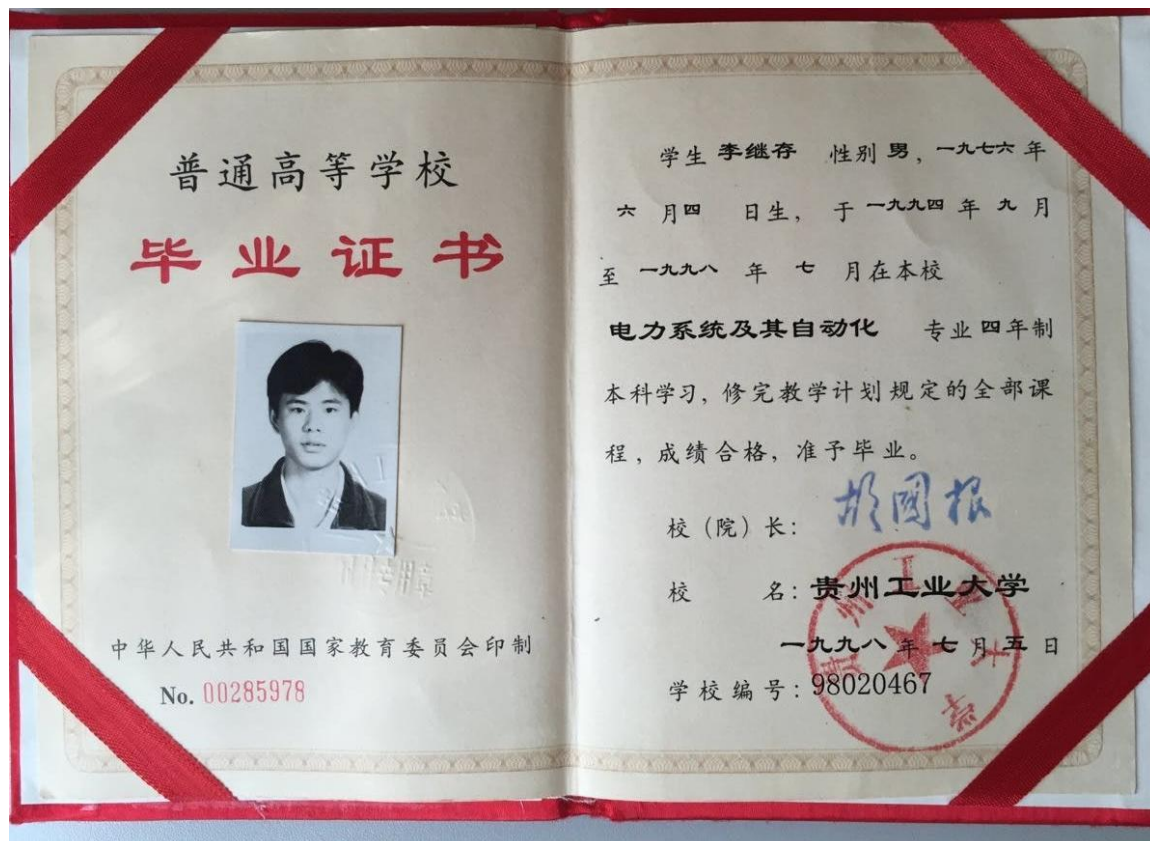 普通高等学校
毕业证书
中华人民共和国国家教育委员会印制
No. 00285978
学生 李继存 性别 男，一九七六年
六 月四 日生，于 一九九四 年 九 月
至 一九九八 年 七 月在本校
电力系统及其自动化 专业 四年制
本科学习，修完教学计划规定的全部课
程，成绩合格，准予毕业。
校（院）长： 胡国根
校 名：贵州工业大学
一九九八 年 七 月 五 日
学校编号：98020467
贵州工业大学